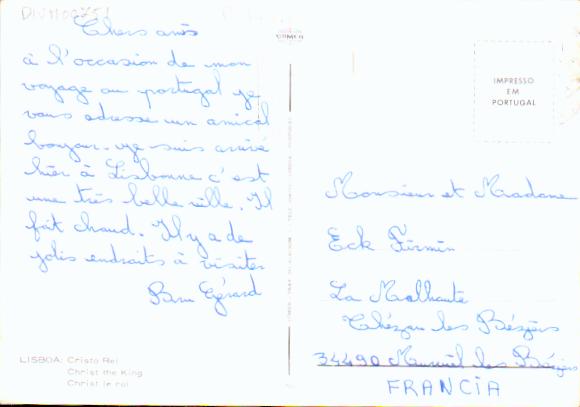 Chers amis
à l'occasion de mon
voyage au portugal je
vous adresse un amical
bonjour. je suis arrivé
hier à Lisbonne c'est
une très belle ville. Il
fait chaud. Il y a de
jolis endroits à visiter
Gérard
LISBOA: Cristo Rei
Christ the King
Christ le roi
COMER
IMPRESSO
EM
PORTUGAL
Monsieur et Madame
Eck Firmin
La Malhaute
Thézan les Béziers
34490 Murviel les Béziers
FRANCIA